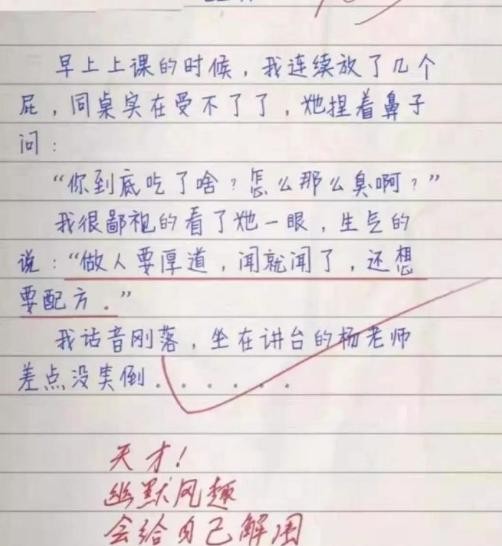 早上上课的时候，我连续放了几个
屁，同桌实在受不了了，她捏着鼻子
问：
“你到底吃了啥？怎么那么臭啊？”
我很鄙视的看了她一眼，生气的
说：“做人要厚道，闻就闻了，还想
要配方。”
我话音刚落，坐在讲台的杨老师
差点没笑倒......
天才！
幽默风趣
会给自己解围